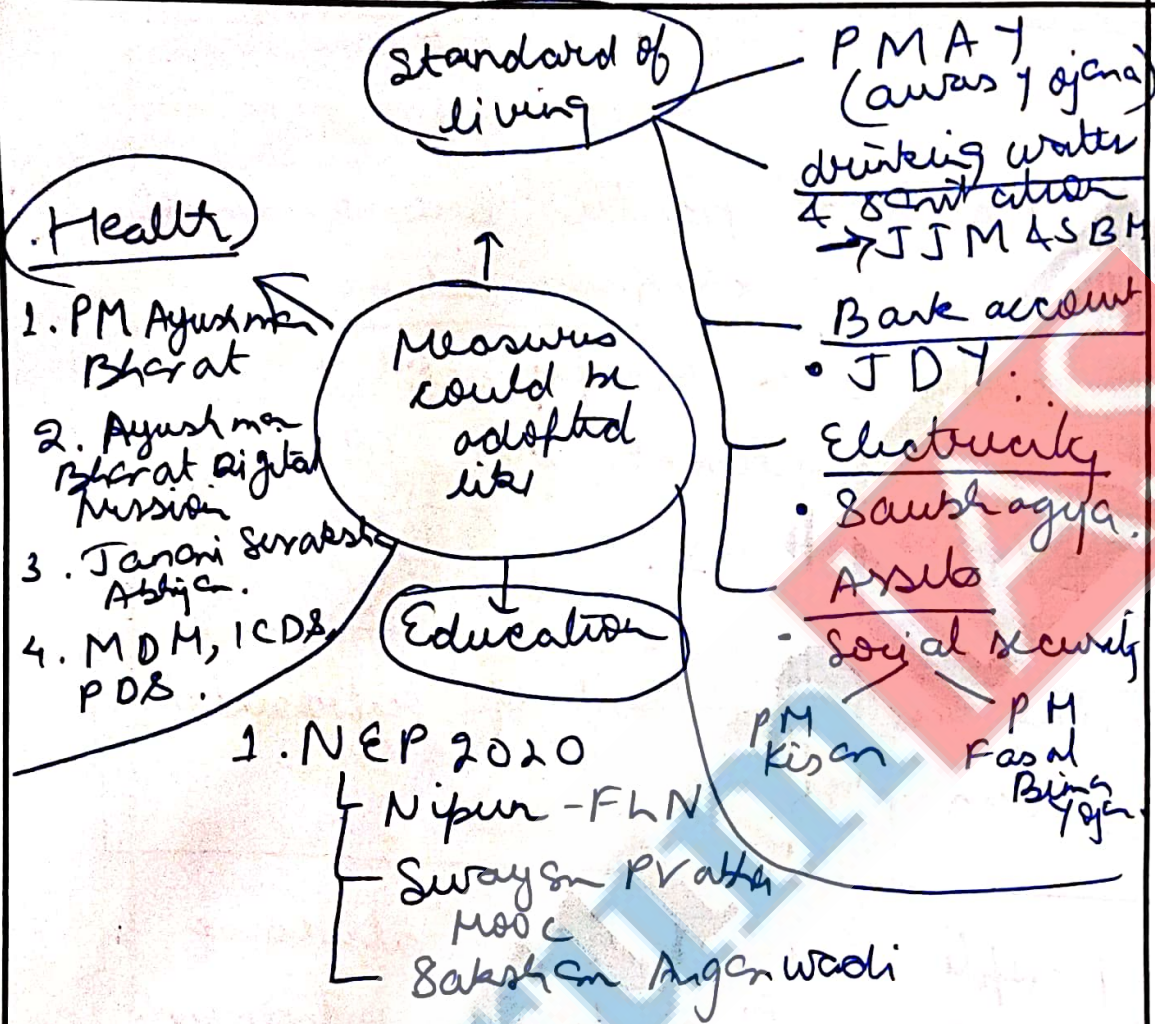 Standard of
living
PMAY
(awas Yojana)
drinking water
& sanitation
→ JJM & SBM
Bank account
• JDY.
Electricity
• Saubhagya.
Assets
- Social security
PM
Kisan
PM
Fasal
Bima
Yojn.
. Health
1. PM Ayushman
Bharat
2. Ayushman
Bharat Digital
Mission
3. Janani Suraksha
Abhiyan.
4. MDM, ICDS,
PDS.
Measures
could be
adopted
like
Education
1. NEP 2020
Nipun - FLN
Swayam Prabha
MOOC
Saksham Anganwadi